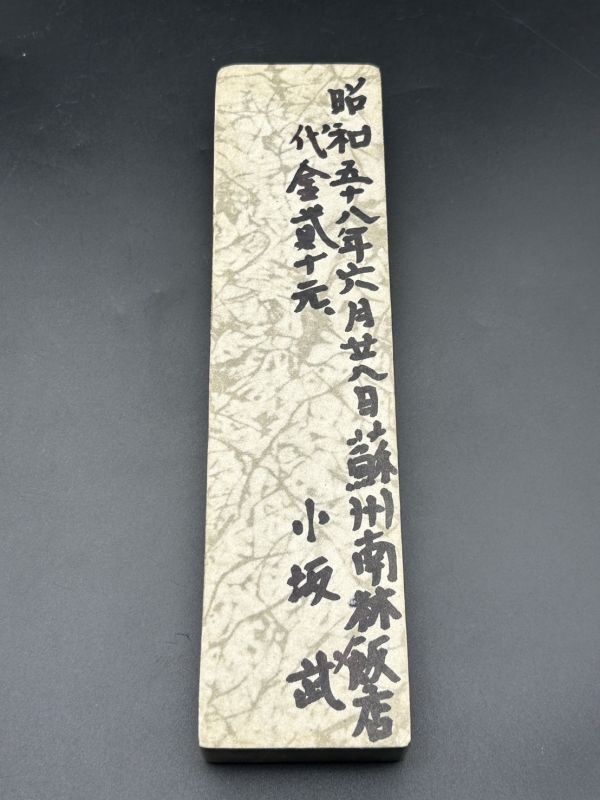 昭和五十八年六月廿八日蘇州南林飯店
代金貳十元、
小坂 武